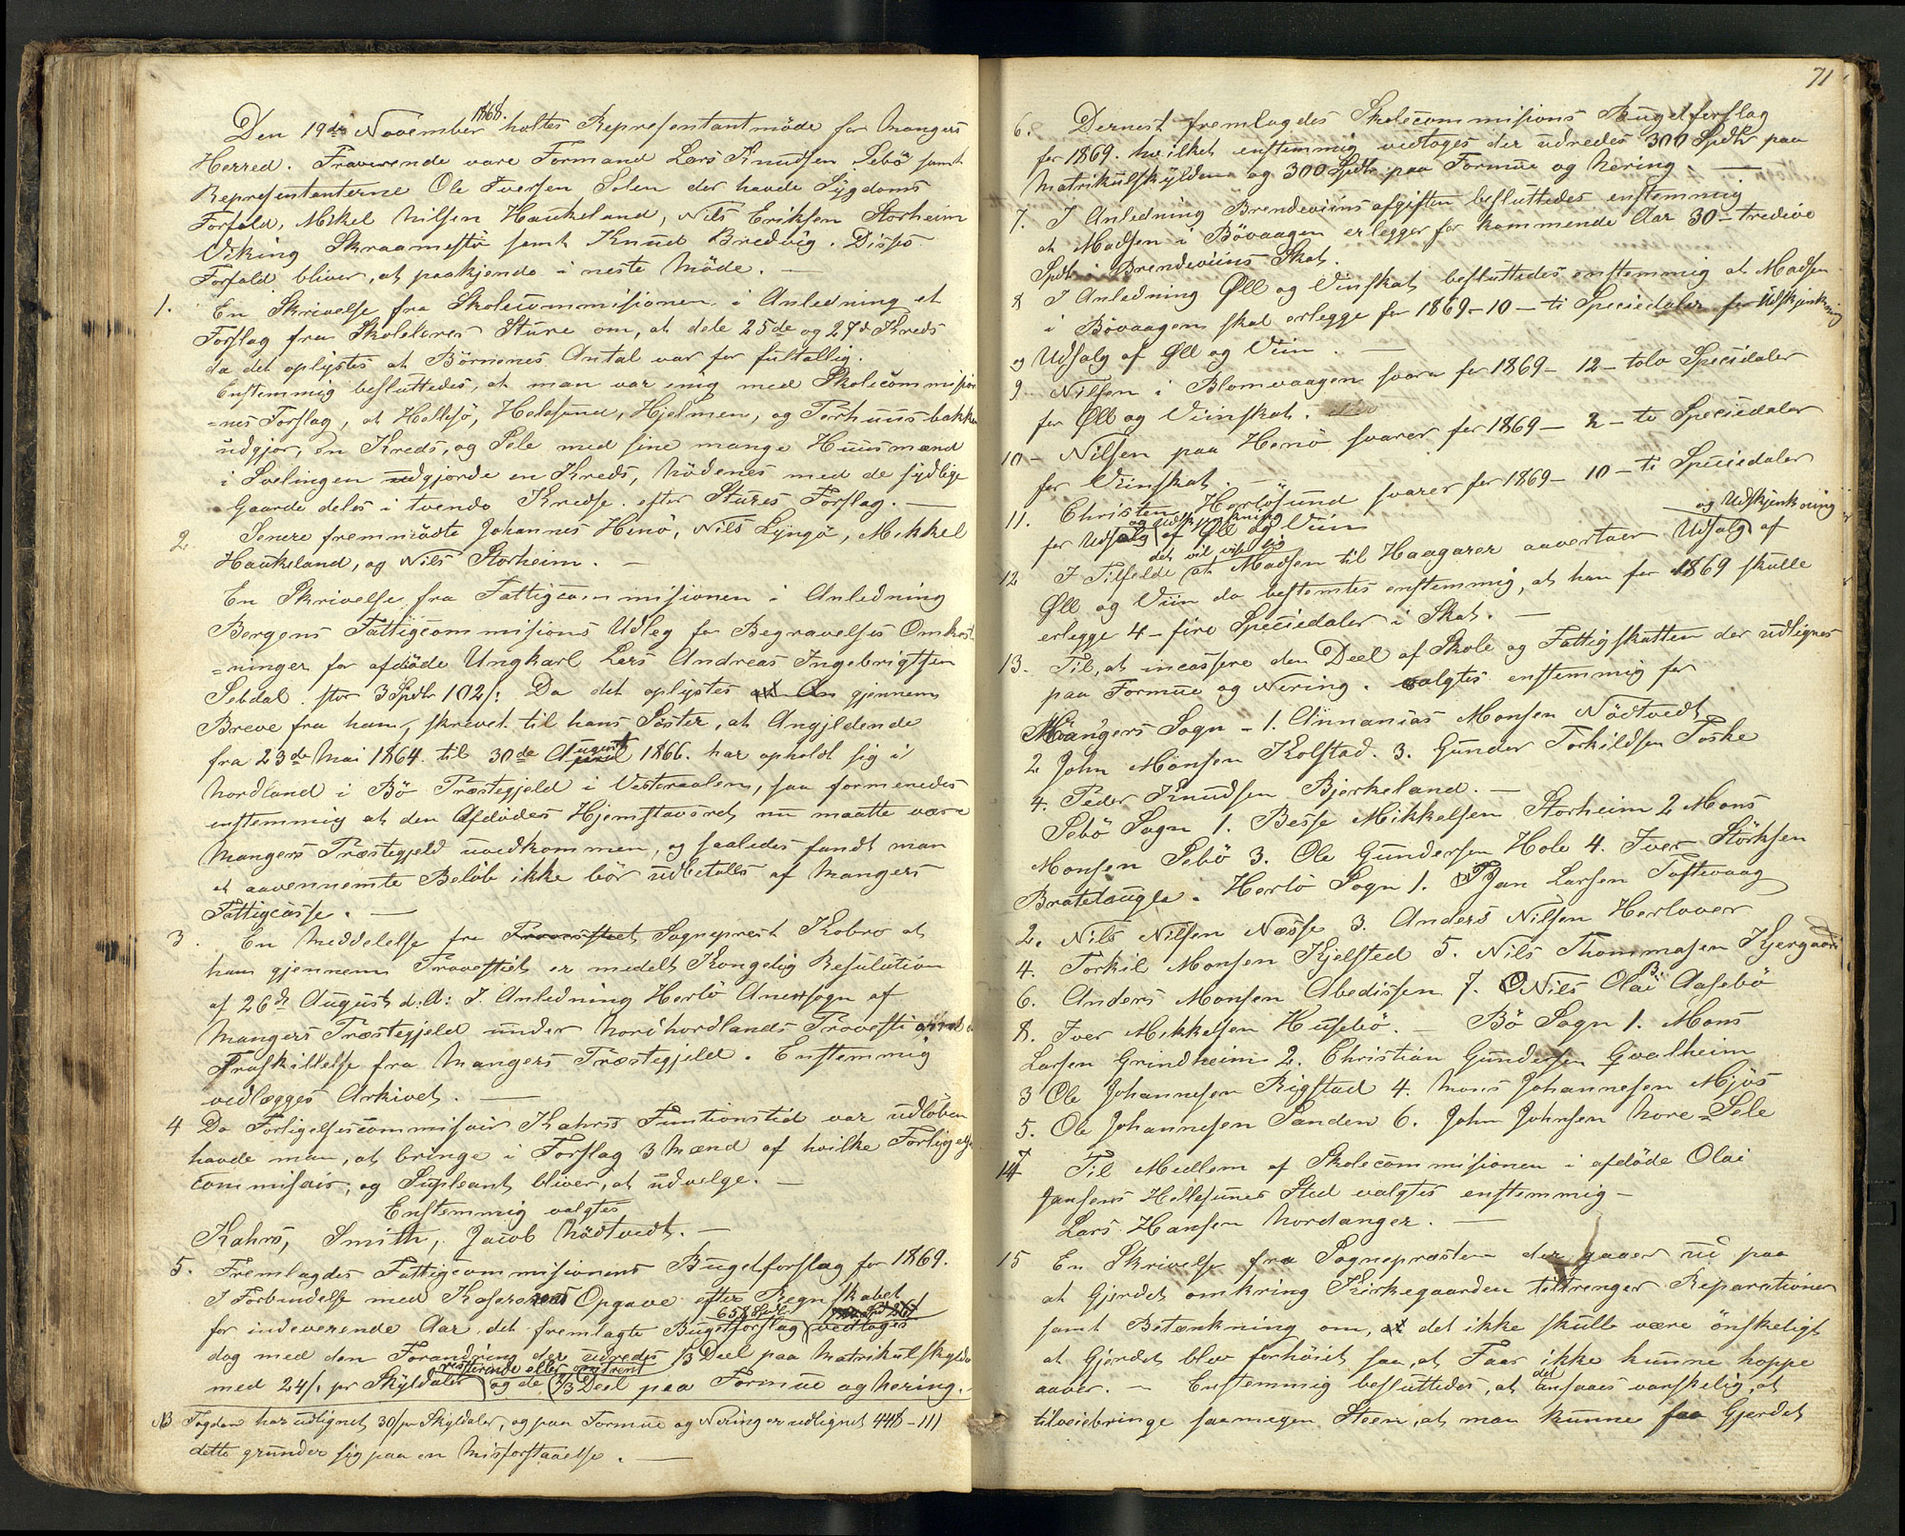 Den 19de November 1868. holtes Repræsentantmöde for Mangers
Herred. Fraværende vare Formand Lars Knudsen Sebö samt
Repræsentanterne Ole Iversen Solen der havde Sygdoms
Forfald, Mikel Nilsen Haukeland, Nils Eriksen Storheim
Viking Skraamestö samt Knud Bredvig. Disses
Forfald bliver, at paakjende i neste Möde. —
1. En Skrivelse fra Skolecommisionen i Anledning et
Forslag fra Skolelærer Sture om, at dele 25de og 27d Kreds
da det oplystes at Börnenes Antal var for fultallig.
Enstemmig besluttedes, at man var enig med Skolecommisio
=nes Forslag, at Hellesö, Helesund, Hjelmen, og Torhuusbakke
udgjor, en Kreds, og Sele med sine mange Huusmænd
i Soelingen udgjorde en Kreds, Nödenes med de sydlige
Gaarde deles i tvende Kredse efter Stures Forslag. —
2. Senere fremmödte Johannes Henö, Nils Lyngö, Mikkel
Haukeland, og Nils Storheim. —
En Skrivelse fra Fattigcommisionen i Anledning
Bergens Fattigcommisions Udleg for Begravelses Omkost
=ninger for afdöde Ungkarl Lars Andreas Ingebrigtsen
Sebdal. stor 3 Spdlr 102 s: Da det oplystes at An gjennem
Breve fra ham, skrevet til hans Söster, at Angjeldende
fra 23de Mai 1864. til 30de August 1866. har opholdt sig i
Nordland i Bö Præstegjeld i Vesteraalen, saa formenedes
enstemmig at den Afdödes Hjemstavsret nu maatte være
Mangers Præstegjeld uvedkommen, og saaledes fandt man
at aavennemte Belöb ikke bör udbetalls af Mangers
Fattigcasse. —
3. En Meddelelse fra Provsstiet Sogneprest Kobro at
han gjennem Provestiet er medelt Kongelig Resulution
af 26de August d:A: I Anledning Herlö Anexsogn af
Mangers Præstegjeld under Nordhordlands Provesti
Fraskillelse fra Mangers Præstegjeld. Enstemmig
vedlægges Arkivet. —
4 Da Forligelsescommisair Kahrs Funtionstid var udlöben
havde man, at bringe i Forslag 3 Mænd af hvilke Forligelses
commisair, og Supleant bliver, at udvelge. —
Enstemmig valgtes
Kahrs, Smith, Jacob Nödtvedt. —
5. Fremlagdes Fattigcommisionens Bugetforslag for 1869.
I Forbindelse med Kasererens Opgave efter Regnskabet
for indeverende Aar det fremlagte Bugetforslag 658 vedtoges
dog med den Forandring der udredes 1/3 Deel paa Matrikulskyld
med 24 s. pr Skyldaler resterende eller omtrent og de 2/3 Deel paa Formue og Nering. —
NB Fogden har udlignet 30 s pr Skyldaler, og paa Formue og Nering er udlignet 448 - 111
dette grunder sig paa en Misforstaaelse. —
71
6. Dernest fremlagdes Skolecommisions Bugetforslag
for 1869. hvilket enstemmig vedtoges der udredes 300 Spdlr paa
Matrikulskylden og 300 Spdlr paa Formue og Nering —
7. I Anledning Brendeviinsafgiften besluttedes enstemmig
at Madsen i Bövaagen erlegger for kommende Aar 30 - tredive
Spdlr i Brendeviins Skat.
8 I Anledning Øll og Viinskat besluttedes enstemmig at Madsen
i Bövaagen skal erlegge for 1869 - 10 - ti Speciedaler for Udskjenkning
og Udsalg af Øll og Viin. —
9 Nilsen i Blomvaagen svarer for 1869 - 12 - tolv Speciedaler
for Øll og Viinskat.
10 - Nilsen paa Henö svarer for 1869 - 2 - to Speciedaler
for Viinskat. —
11. Christen Herlösund svarer for 1869 - 10 - ti Speciedaler
for Udsalg og Udskjenkning af Øll og Viin
12 I Tilfelde det vil vise sig at Madsen til Haagarer aavertaer Udsalg og Udskjenkning af
Øll og Viin da bestemtes enstemmig, at han for 1869 skulle
erlegge 4 - fire Speciedaler i Skat. —
13. Til, at incassere den Deel af Skole og Fattigskatten der udlignes
paa Formue og Nering. valgtes enstemmig for
Mangers Sogn - 1. Annanias Monsen Nödtvedt
2 John Monsen Kolstad. 3. Gunder Torkildsen Toske
4. Peder Knudsen Bjerkeland. —
Sebö Sogn 1. Besse Mikkelsen Storheim 2 Mons
Monsen Sebö 3. Ole Gundersen Hole 4. Iver Störksen
Bratetaugle. Herlö Sogn 1. Jan Larsen Toftevaag
2. Nils Nilsen Næsse 3. Anders Nilsen Herlover
4. Torkil Monsen Kjelsted 5. Nils Thommasen Kjergaard
6. Anders Monsen Abedissen 7. Nils Olai B. Aasebö
8. Iver Mikkelsen Husebö. — Bö Sogn 1. Mons
Larsen Grindheim 2. Christian Gundersen Qvalheim
3 Ole Johannesen Rigstad 4. Mons Johannesen Mjös
5. Ole Johannesen Sanden 6. John Johnsen Nore-Sele
14 Til Medlem af Skolecommisionen i afdöde Olai
Jansens Hellesunes Sted valgtes enstemmig —
Lars Hansen Nordanger. —
15 En Skrivelse fra Sognepræsten der gaaer ud paa
at Gjerdet omkring Kirkegaarden tiltrenger Reparationer
samt Betænkning om, at det ikke skulle være önskeligt
at Gjerdet blev forhöiet saa, at Faar ikke kunne hoppe
aaver. — Enstemmig besluttedes, at det ansaaes vanskelig, at
tilveiebringe saamegen Steen, at man kunne faa Gjerdet